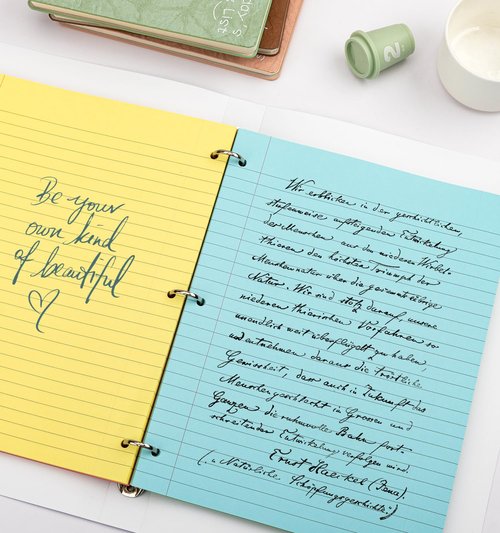 Be your
own kind
of beautiful
Wir erblicken in der geschichtlichen,
stufenweise aufsteigenden Entwickelung
der Menschen aus den niederen Wirbel-
thieren den höchsten Triumph der
Menschennatur über die gesammte übrige
Natur. Wir sind stolz darauf, unsere
niederen thierischen Vorfahren so
unendlich weit überflügelt zu haben,
und entnehmen daraus die tröstliche
Gewissheit, dass auch in Zukunft das
Menschengeschlecht im Grossen und
Ganzen die ruhmvolle Bahn fort-
schreitender Entwickelung verfolgen wird.
Ernst Haeckel (Jena).
(„Natürliche Schöpfungsgeschichte“)
List
2